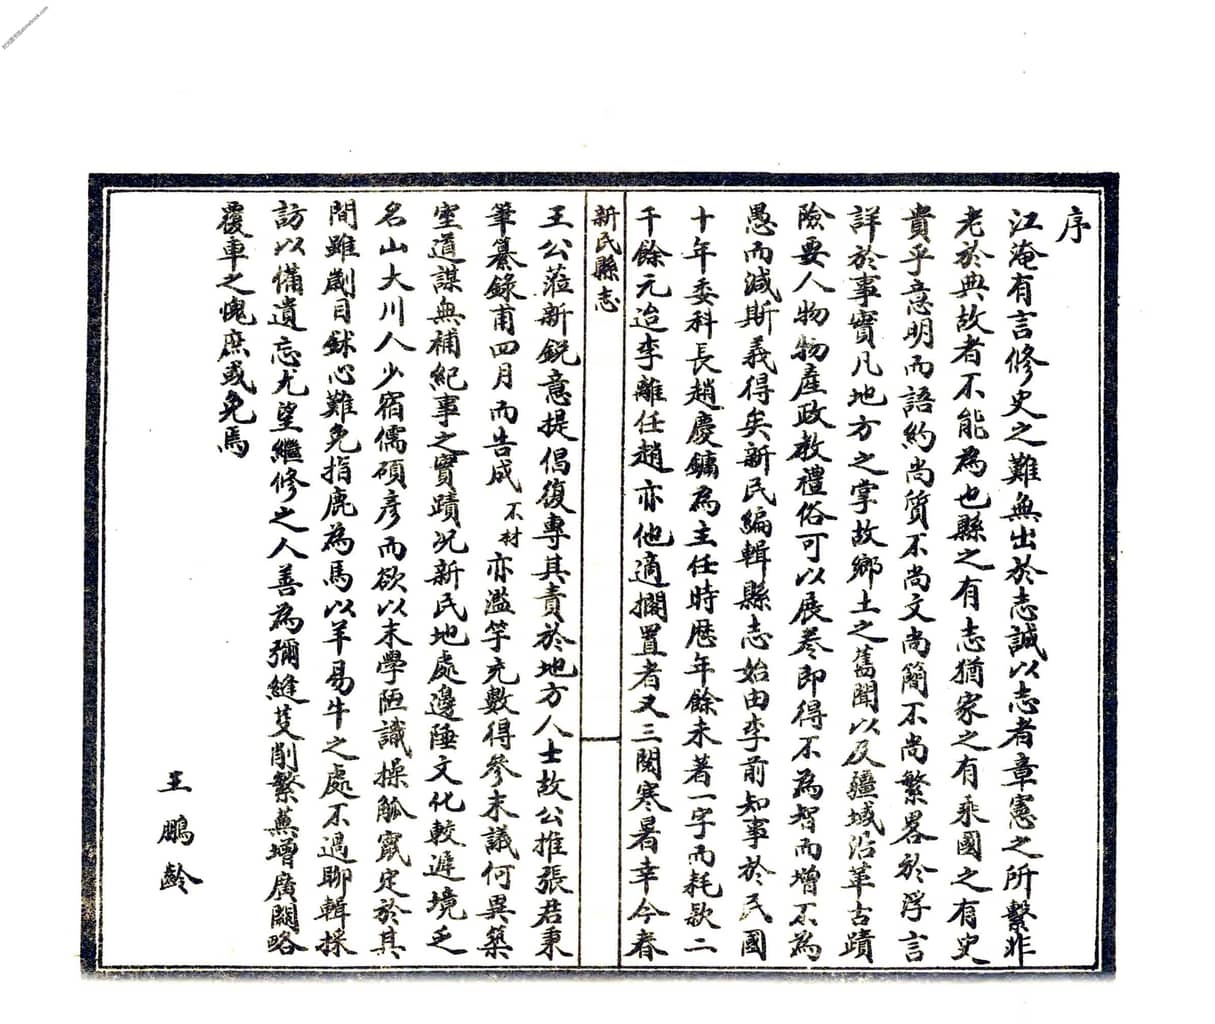 序
江淹有言修史之難無出於志誠以志者章憲之所繫非
老於典故者不能為也縣之有志猶家之有乘國之有史
貴乎意明而語約尚質不尚文尚簡不尚繁畧於浮言
詳於事實凡地方之掌故鄉土之舊聞以及疆域沿革古蹟
險要人物物產政教禮俗可以展卷即得不為智而增不為
愚而減斯義得矣新民編輯縣志始由李前知事於民國
十年委科長趙慶鏞為主任時歷年餘未著一字而耗款二
千餘元迨李離任趙亦他適擱置者又三閱寒暑幸今春
新民縣志
王公蒞新銳意提倡復專其責於地方人士故公推張君秉
筆纂錄甫四月而告成不材亦濫竽充數得參末議何異築
室道謀無補紀事之實蹟況新民地處邊陲文化較遲境乏
名山大川人少宿儒碩彥而欲以末學陋識操觚竄定於其
間雖劌目鉥心難免指鹿為馬以羊易牛之處不過聊輯採
訪以備遺忘尤望繼修之人善為彌縫芟削繁蕪增廣闕略
覆車之愧庶或免焉
王鵬齡